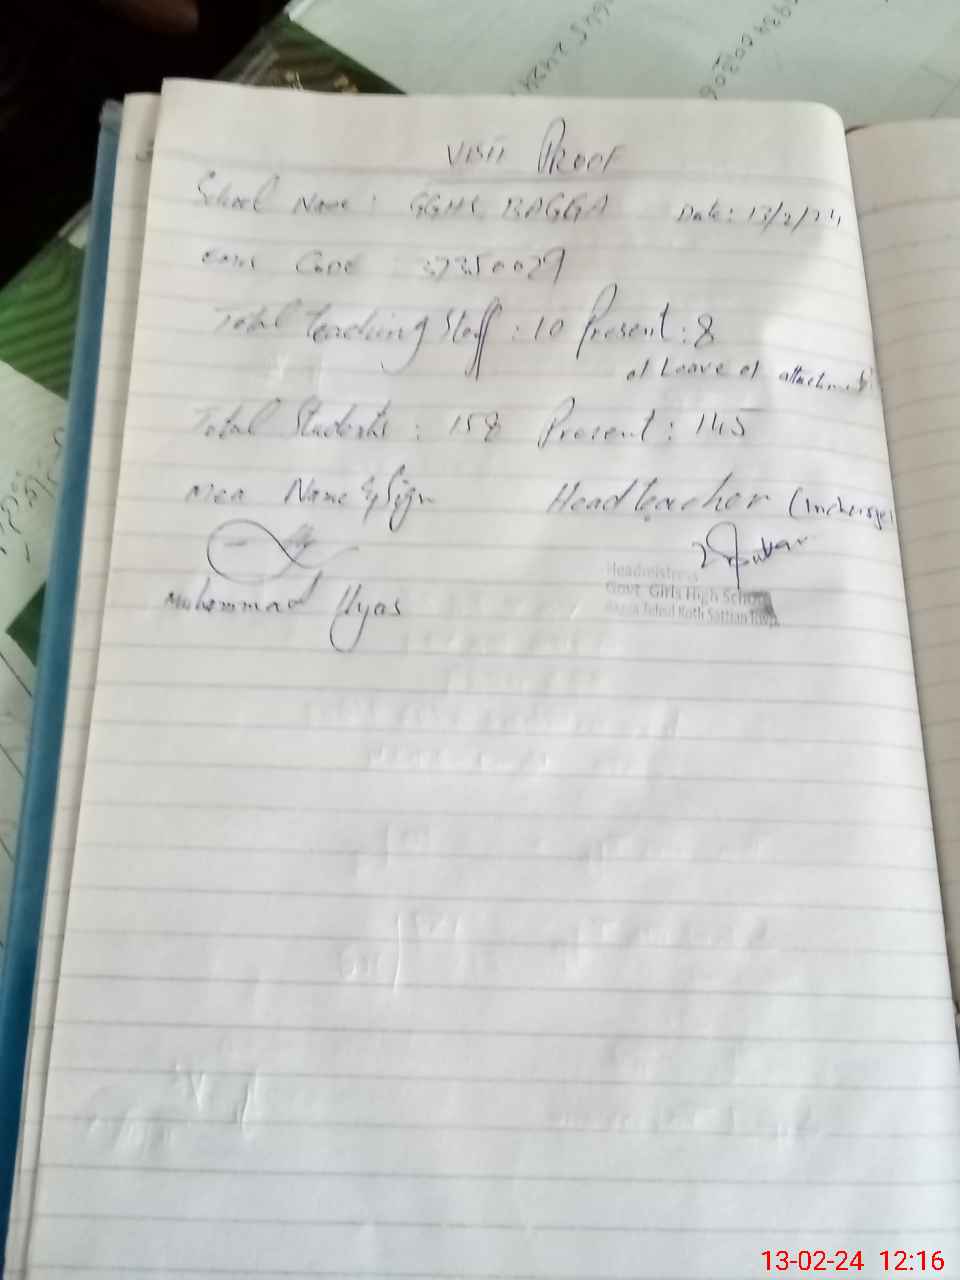 VISIT PROOF
School Name: GGHS BAGGA Date: 13/2/24
EMIS CODE 37350029
Total teaching Staff: 10 Present: 8
01 Leave 01 attachment
Total Students: 158 Present: 145
Mea Name & Sign Headteacher (Incharge)
Muhammad Ilyas
Headmistress
Govt Girls High School
Bagga Tehsil Kotli Sattian
13-02-24 12:16